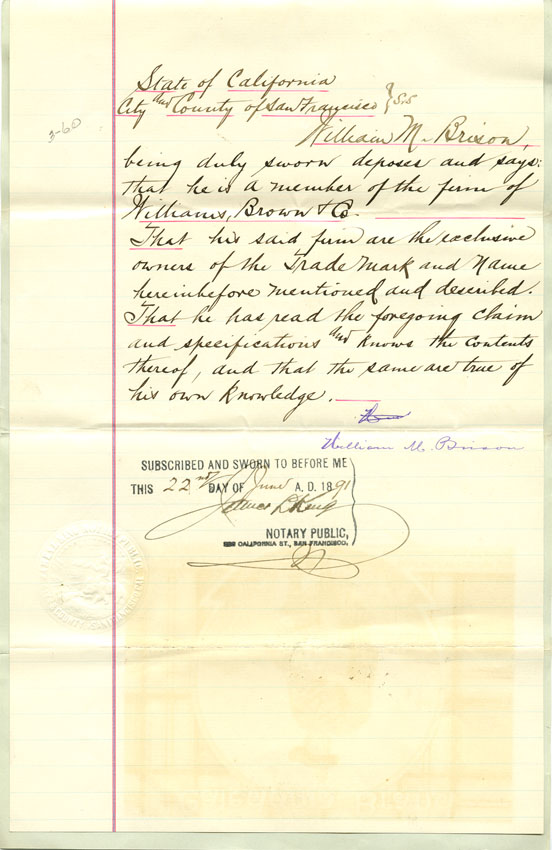 State of California
City and County of San Francisco } SS
3-60
William M. Brison,
being duly sworn deposes and says:
that he is a member of the firm of
Williams, Brown & Co.
That his said firm are the exclusive
owners of the Trade Mark and Name
hereinbefore mentioned and described.
That he has read the foregoing claim
and specifications and knows the contents
thereof, and that the same are true of
his own knowledge.
William M. Brison
SUBSCRIBED AND SWORN TO BEFORE ME
THIS 22nd DAY OF June A. D. 1891
James L. King
NOTARY PUBLIC,
CALIFORNIA ST., SAN FRANCISCO.